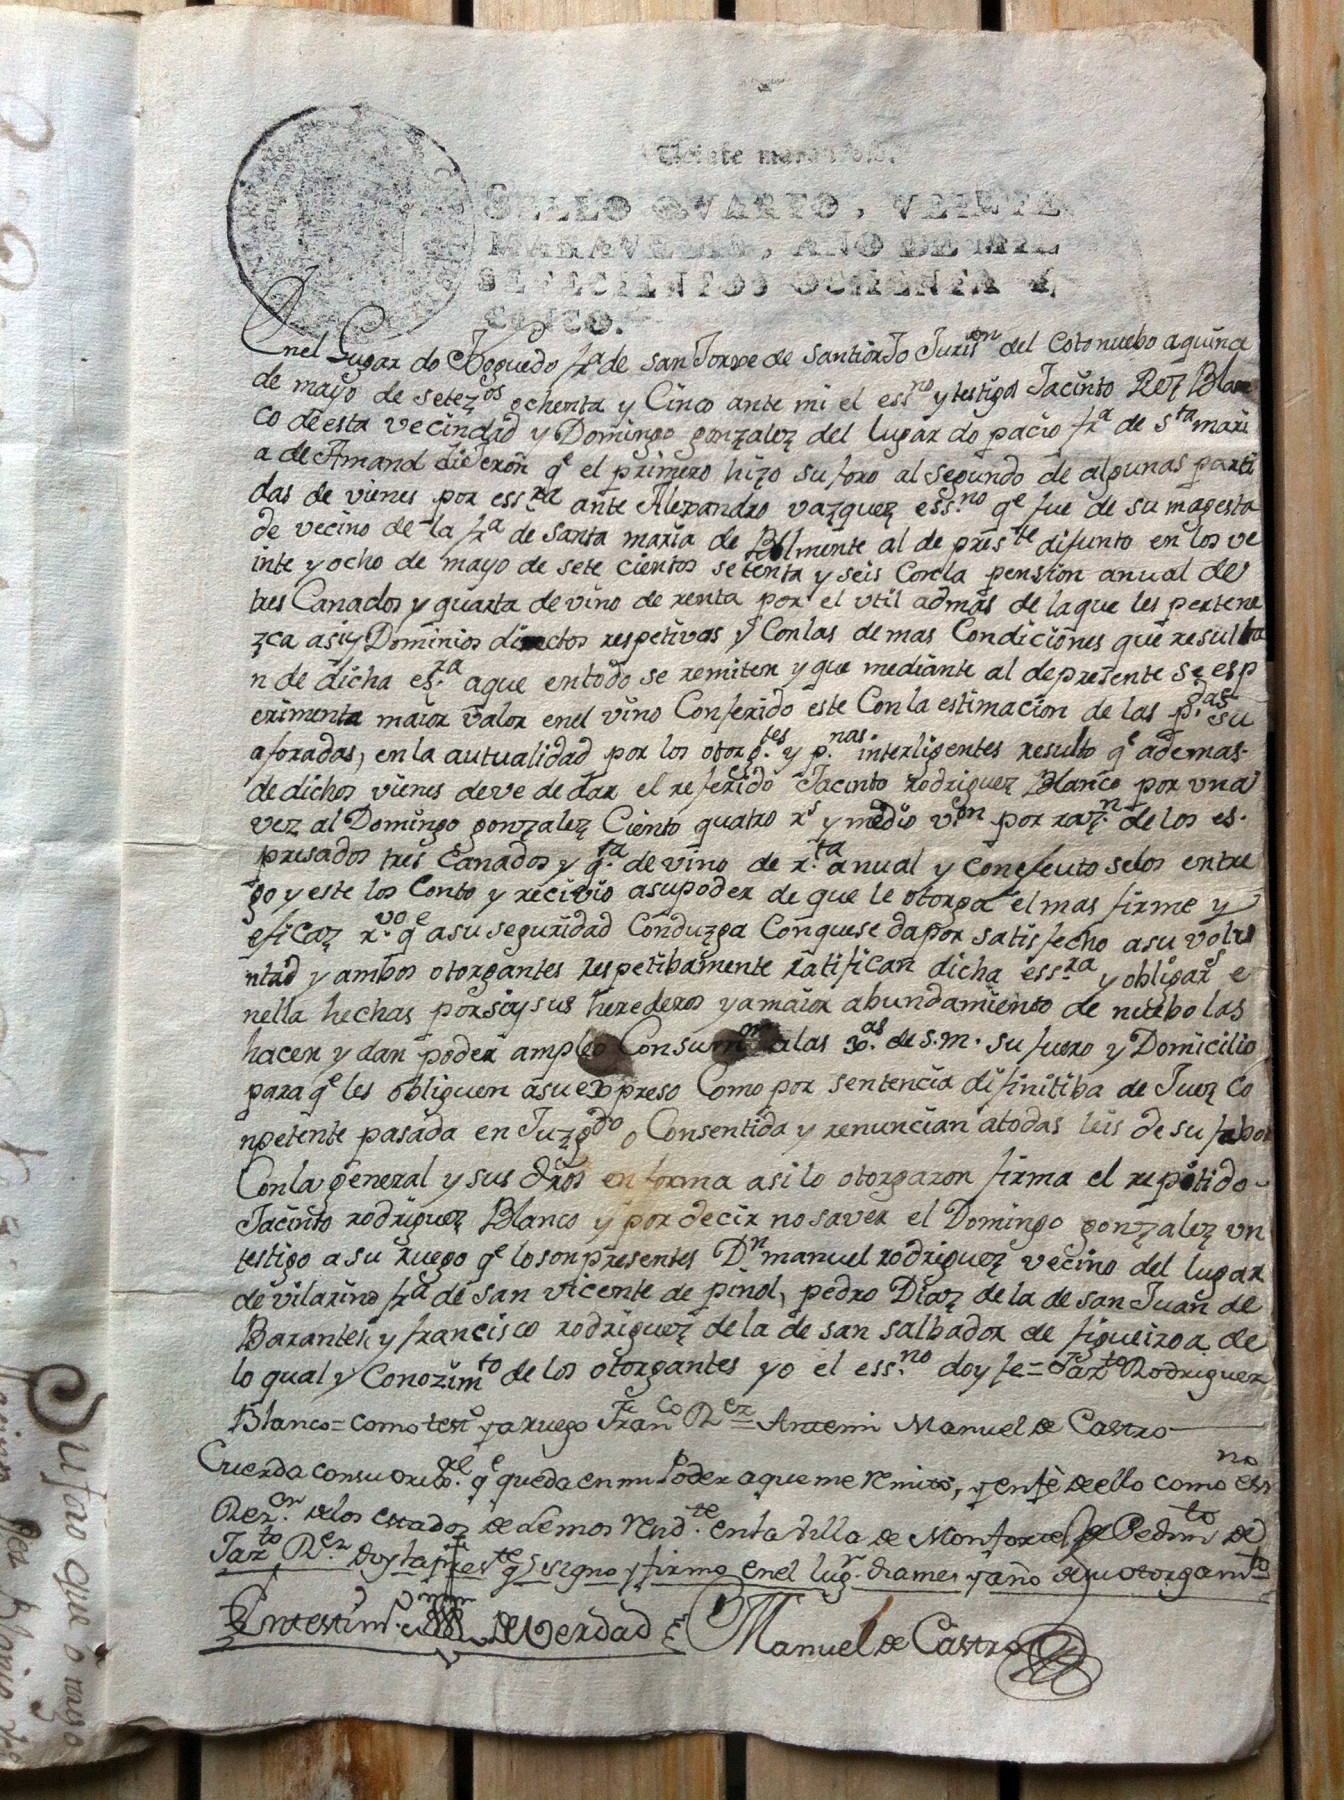 Veinte maravedis.
SELLO QVARTO, VEINTE
MARAVEDIS, AÑO DE MIL
SETECIENTOS OCHENTA Y
CINCO.
Enel Lugar do fra de san Jorxe de Santiorjo Jurison del Cotonuebo aquince
de mayo de setezos ochenta y Cinco ante mi el essno y testigos Jacinto Roz Blan
co de esta vecindad y Domingo gonzalez del lugar do pacio fra de sta mari
a de Amand dijeron qe el primero hizo su foro al segundo de algunas parti
das de vienes por essra ante Alexandro vazquez essno qe fue de su magesta
de vecino de la fra de santa maria de Bolmente al de preste difunto en los ve
inte y ocho de mayo de sete cientos setenta y seis Conla pension anual de
tres Canados y quarta de vino de renta por el vtil admas de laque les pertene
zca asiy Dominios directos respetivos y Conlas demas Condiciones que resulta
n de dicha esra aque entodo se remiten y que mediante al depresente se esp
erimenta maior valor enel vino Conferido este Conla estimacion de las pdas su
aforadas, en la autualidad por los otorgtes y pnas interligentes resulto qe ademas
de dichos vienes deve de dar el referido Jacinto rodriguez Blanco por vna
vez al Domingo gonzalez Ciento quatro rs y medio von por razn de los es.
presados tres Canados y qta de vino de rta anual y conefeuto selos entre
go y este los Conto y recivio asupoder de que le otorga el mas firme y
eficaz rvo qe asu seguridad Conduzga Conquese dapor satisfecho asu volu
ntad y ambos otorgantes respetibamente ratifican dicha essra y obligas e
nella hechas porsiysus herederos yamaior abundamiento de nuebo las
hacen y dan poder ampleo Consumon alas Jas de s.m. su fuero y Domicilio
para qe les obliguen asu expreso Como por sentencia difinitiba de Juez Co
npetente pasada en Juzgdo o Consentida y renuncian atodas leis de su fabor
Conla general y sus dros en forma asi lo otorgaron firma el repitido
Jacinto rodriguez Blanco y por decir no saver el Domingo gonzalez vn
testigo a su ruego qe loson presentes Dn manuel rodriguez vecino del lugar
de vilarino fra de san vicente de pinol, pedro Diaz de la de san Juan de
Barantes y francisco rodriguez de la de san salbador de figueiroa de
lo qual y Conozimto de los otorgantes yo el essno doy fe = Jazto Rodriguez
Blanco = como testo y aruego Franco Rez = Antemi Manuel de Castro
Cuerda consu qe queda en mi Poder aque me remito, y enfe de ello como essno
Recr de los estados de Lemos en la villa de Monforte de Pedimto de
Jazto Rez doy la preste qe signo y firmo en el lugr dia mes y año de su otorgamto
En testimo de Verdad
Manuel de Castro
Su foro que o mizo